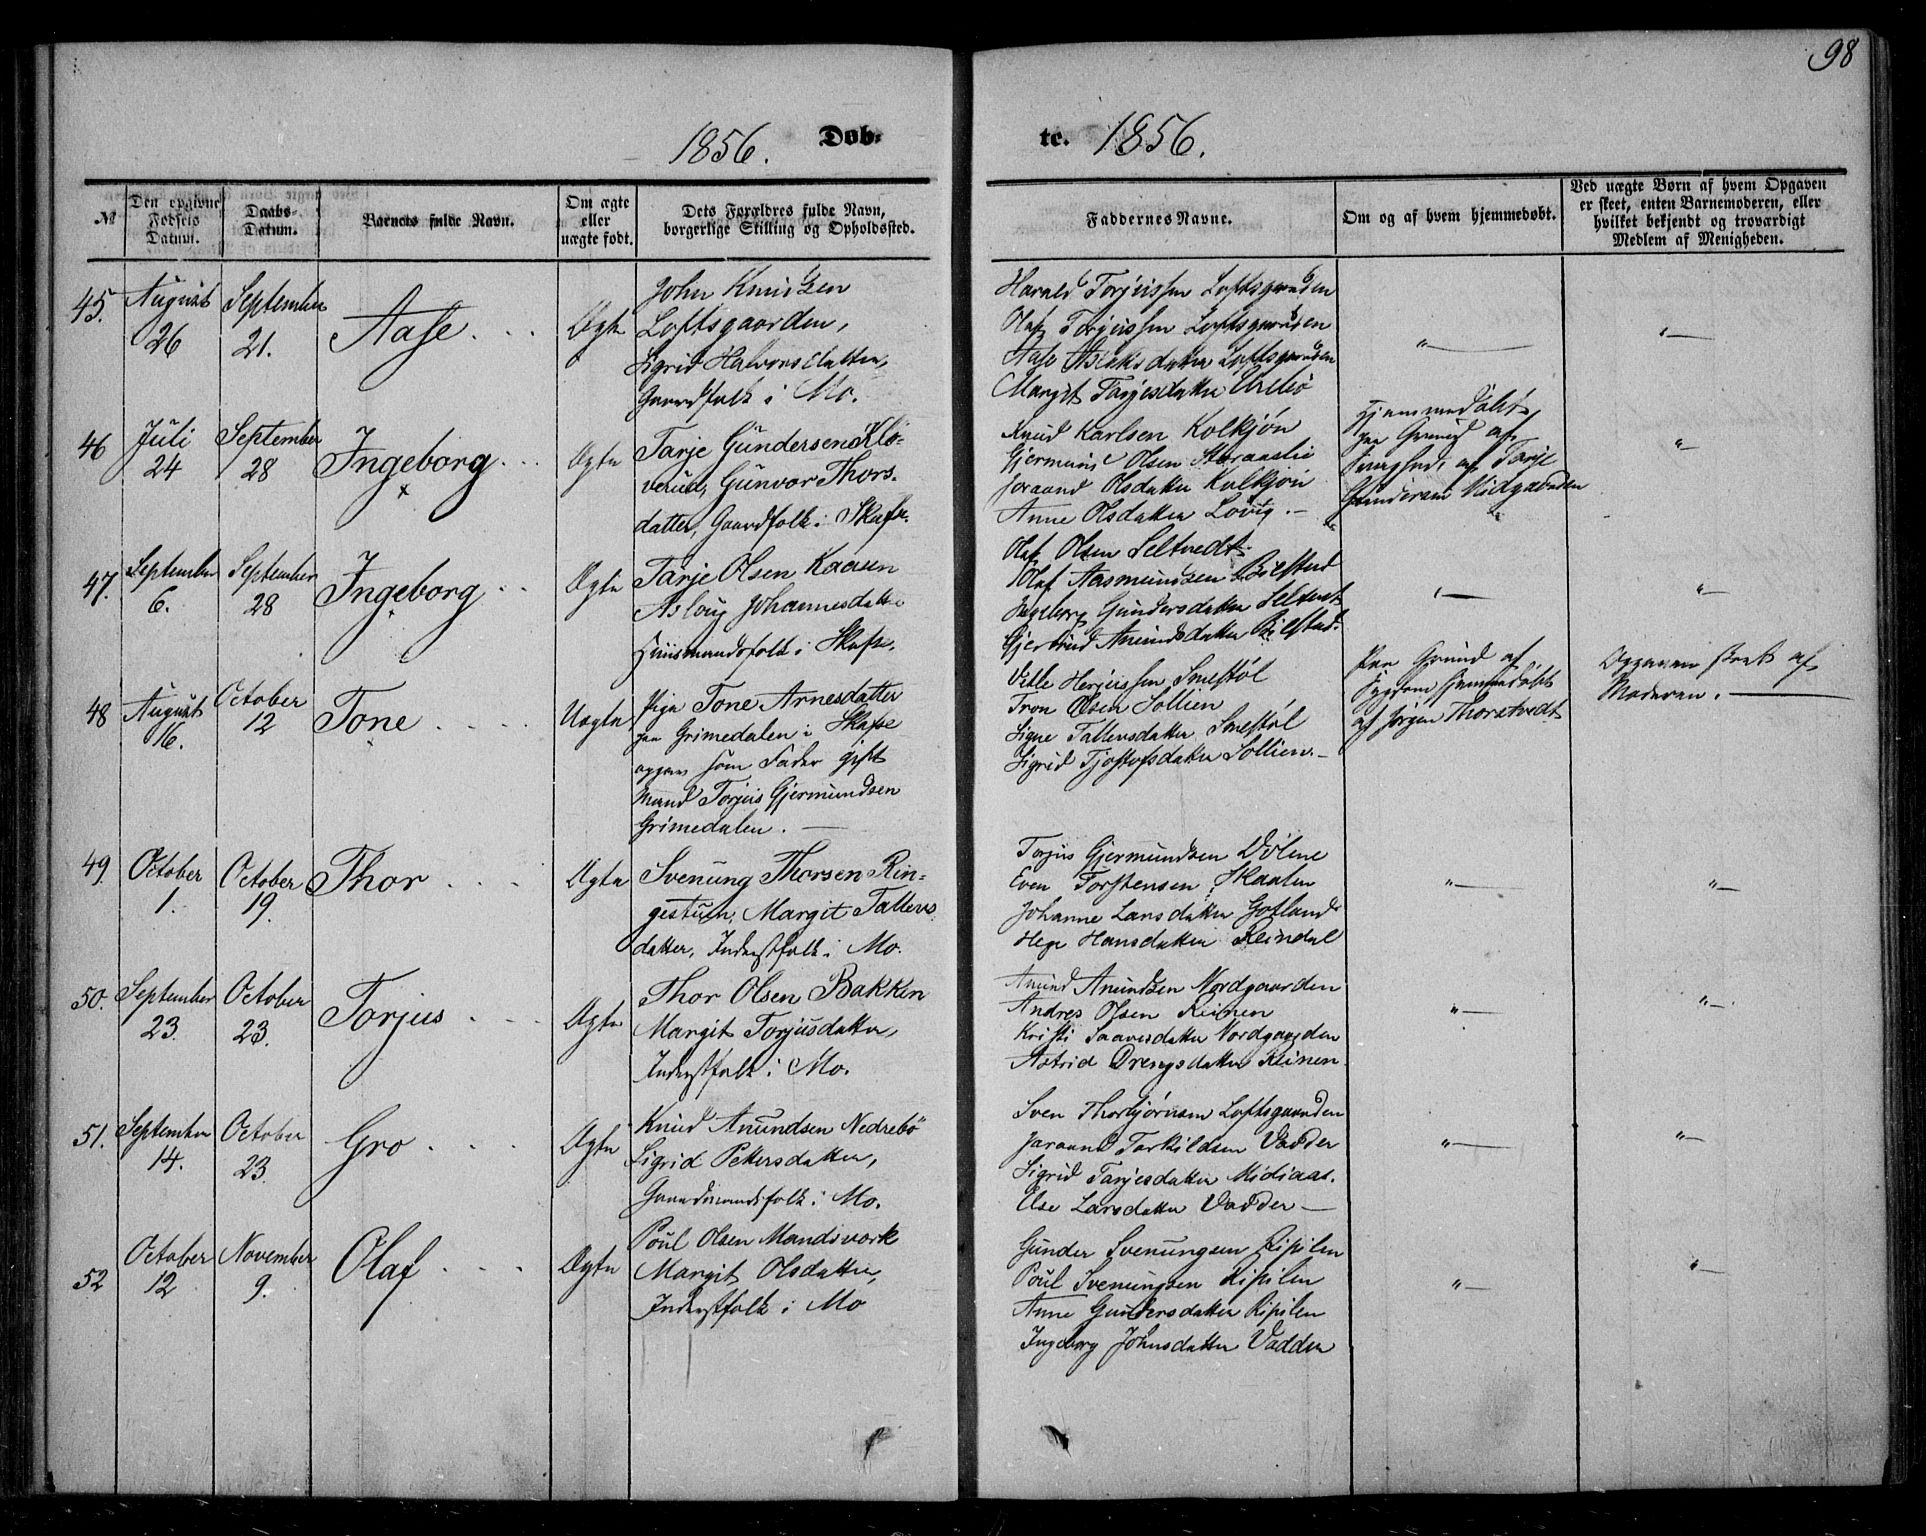 98
1856. Døb-
te. 1856.
№
Den opgivne Fødsels Datum.
Daabs-Datum.
Barnets fulde Navn.
Om ægte eller uægte født.
Dets Forældres fulde Navn, borgerlige Stilling og Opholdssted.
Faddernes Navne.
Om og af hvem hjemmedøbt.
Ved uægte Børn af hvem Opgaven er skeet, enten Barnemoderen, eller hvilket bekjendt og troværdigt Medlem af Menigheden.
45.
August 26
September 21.
Aase
Ægte
John Knudsen
Loftsgaarden,
Sigrid Halvorsdatter,
Gaardfolk i Mo.
Harald Torjussen Loftsgaarden
Olaf Torjussen Loftsgaarden
Aase Aslaksdatter Loftsgaarden
Margit Tarjesdatter Urebø
" —
" —
46
Juli 24
September 28
Ingeborg
Ægte
Tarje Gundersen Klø-
verud, Gunvor Thors-
datter, Gaardfolk i Skafse.
Knud Karlsen Kolkjøn
Gjermund Olsen Storaaslie
Joraand Olsdatter Kolkjøn
Anne Olsdatter Lovig. —
Hjemmedøbt
paa Grund af
Svaghed, af Tarje
Gundersen Vidgaarden
"
47.
September 6.
September 28
Ingeborg
Ægte
Tarje Olsen Kaasen
Asloug Johannesdatter
Huusmandsfolk i Skafse.
Olaf Olsen Seltvedt
Olaf Aasmundsen Bilstad
Ingeborg Gundersdatter Seltvedt
Gjertrud Amundsdatter Bilstad.
" —
" —
48
August 16.
October 12
Tone
Uægte
Pige Tone Arnesdatter
paa Grimedalen i Skafse
opgav som Fader gift
Mand Torjus Gjermundsen
Grimedalen. —
Vetle Herjussen Smestøl
Tron Olsen Sollien
Signe Tallevsdatter Smestøl
Sigrid Tjostofsdatter Sollien. —
Paa Grund af
Sygdom hjemmedøbt
af Jørgen Thorstvedt
Opgaven skeet af
Moderen. —
49.
October 1.
October 19.
Thor
Ægte
Svenung Thorsen Rin-
gestuen, Margit Tallevs-
datter, Inderstfolk i Mo.
Torjus Gjermundsen Dølene
Even Torstensen Skaalen
Johanne Larsdatter Gotland
Hege Hansdatter Reindal
" —
" —
50.
September 23.
October 23.
Torjus
Ægte
Thor Olsen Bakken
Margit Torjusdatter,
Inderstfolk i Mo.
Anund Anundsen Nordgaarden
Andres Olsen Reinen
Kristi Saavesdatter Nordgaarden
Astrid Drengsdatter Reinen.
" —
" —
51.
September 14.
October 23.
Gro
Ægte
Knud Anundsen Nedrebö
Sigrid Pettersdatter,
Gaardmandsfolk i Mo.
Sven Thorbjörnsen Loftsgaarden
Jaraand Torkildsen Vadder
Sigrid Tarjesdatter Midiaas.
Else Larsdatter Vadder —
" —
" —
52
October 12
November 9.
Olaf
Ægte
Poul Olsen Mandsvork
Margit Olsdatter,
Inderstfolk i Mo
Gunder Svenungsen Ripilen
Poul Svenungsen Ripilen
Anne Gundersdatter Ripilen
Ingeborg Johnsdatter Vadder
" —
" —